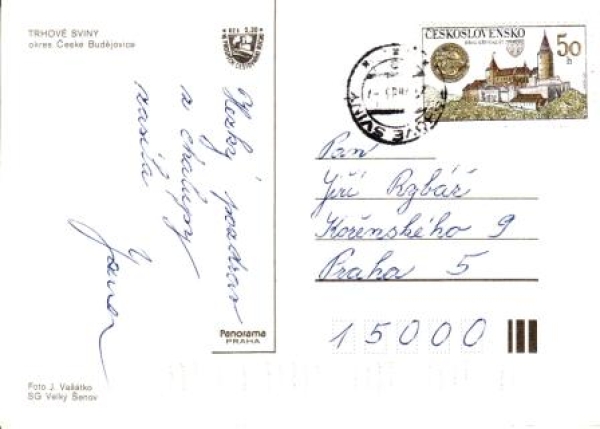 TRHOVÉ SVINY
okres České Budějovice
KčS 0,20
ČESKOSLOVENSKO
50
h
TRHOVÉ SVINY
Hezký pozdrav
z chalupy
zasílá
Pan
Jiří Rybář
Kořenského 9
Praha 5
15000
Panorama
PRAHA
Foto J. Vašátko
SG Velký Šenov